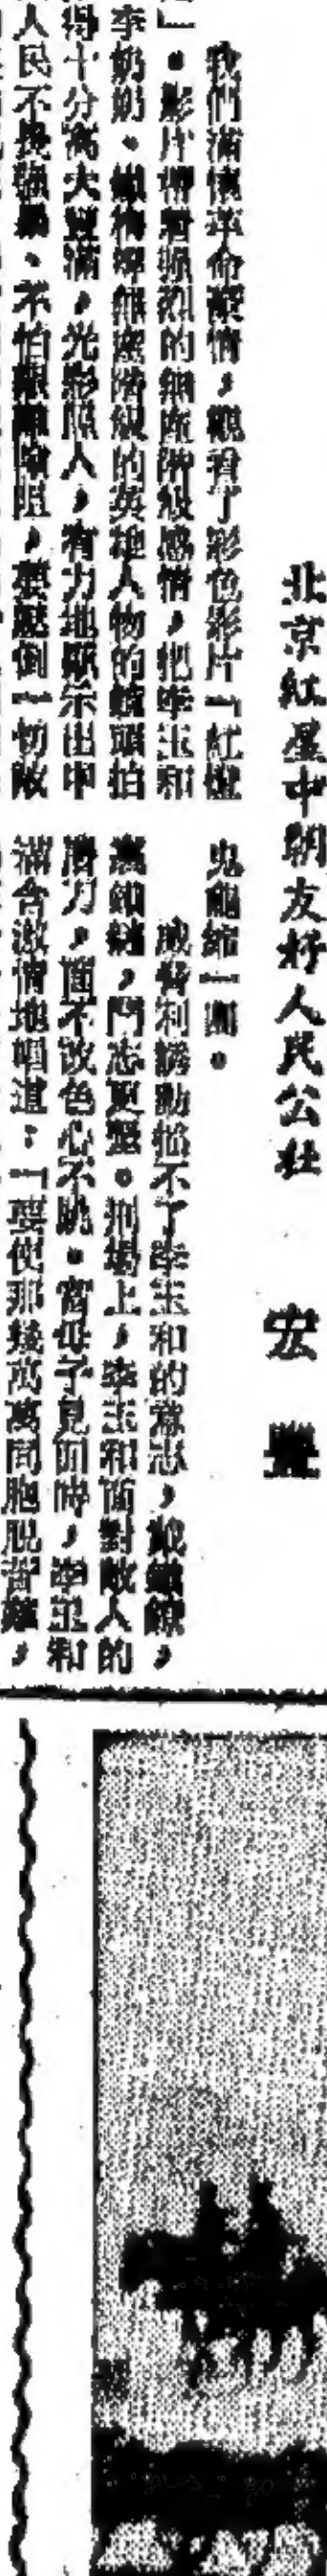 北京紅星中朝友好人民公社　宏豐
我們滿懷革命激情，觀看了彩色影片「紅燈
」。影片懷着強烈的無產階級感情，把李玉和
李奶奶、鐵梅等無產階級的英雄人物的鏡頭拍
得十分高大豐滿，光彩照人，有力地顯示出中
人民不畏強暴、不怕艱難險阻，要壓倒一切敵
鬼龜縮一團。
威脅利誘動搖不了李玉和的意志，戴鐵鐐，
裹鎖鏈，鬥志更堅。刑場上，李玉和面對敵人的
，面不改色心不跳。當母子見面時，李玉和
滿含激情地唱道：「要使那幾萬萬同胞脫苦難，